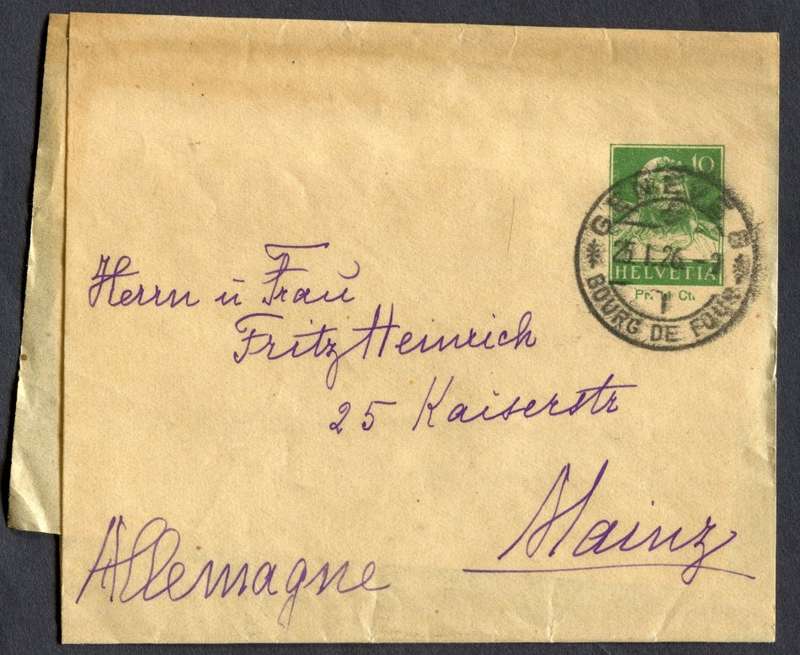 10
GENÈVE 8
25.I.26.-2
HELVETIA
1
BOURG DE FOUR
Herrn u Frau
Fritz Heinrich
25 Kaiserstr
Mainz
Allemagne